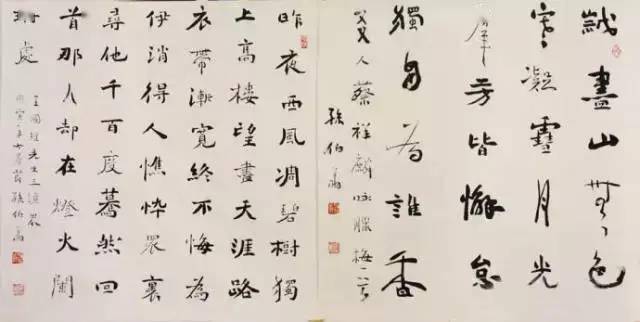 歲盡山無色
寒凝雪月光
群芳皆懈怠
獨自為誰香
友人蔡祥麟咏臘梅一首
孫伯翔
昨夜西風凋碧樹獨
上高樓望盡天涯路
衣帶漸寬終不悔為
伊消得人憔悴眾裏
尋他千百度驀然回
首那人却在燈火闌
珊處
王國維先生三境界
孫伯翔